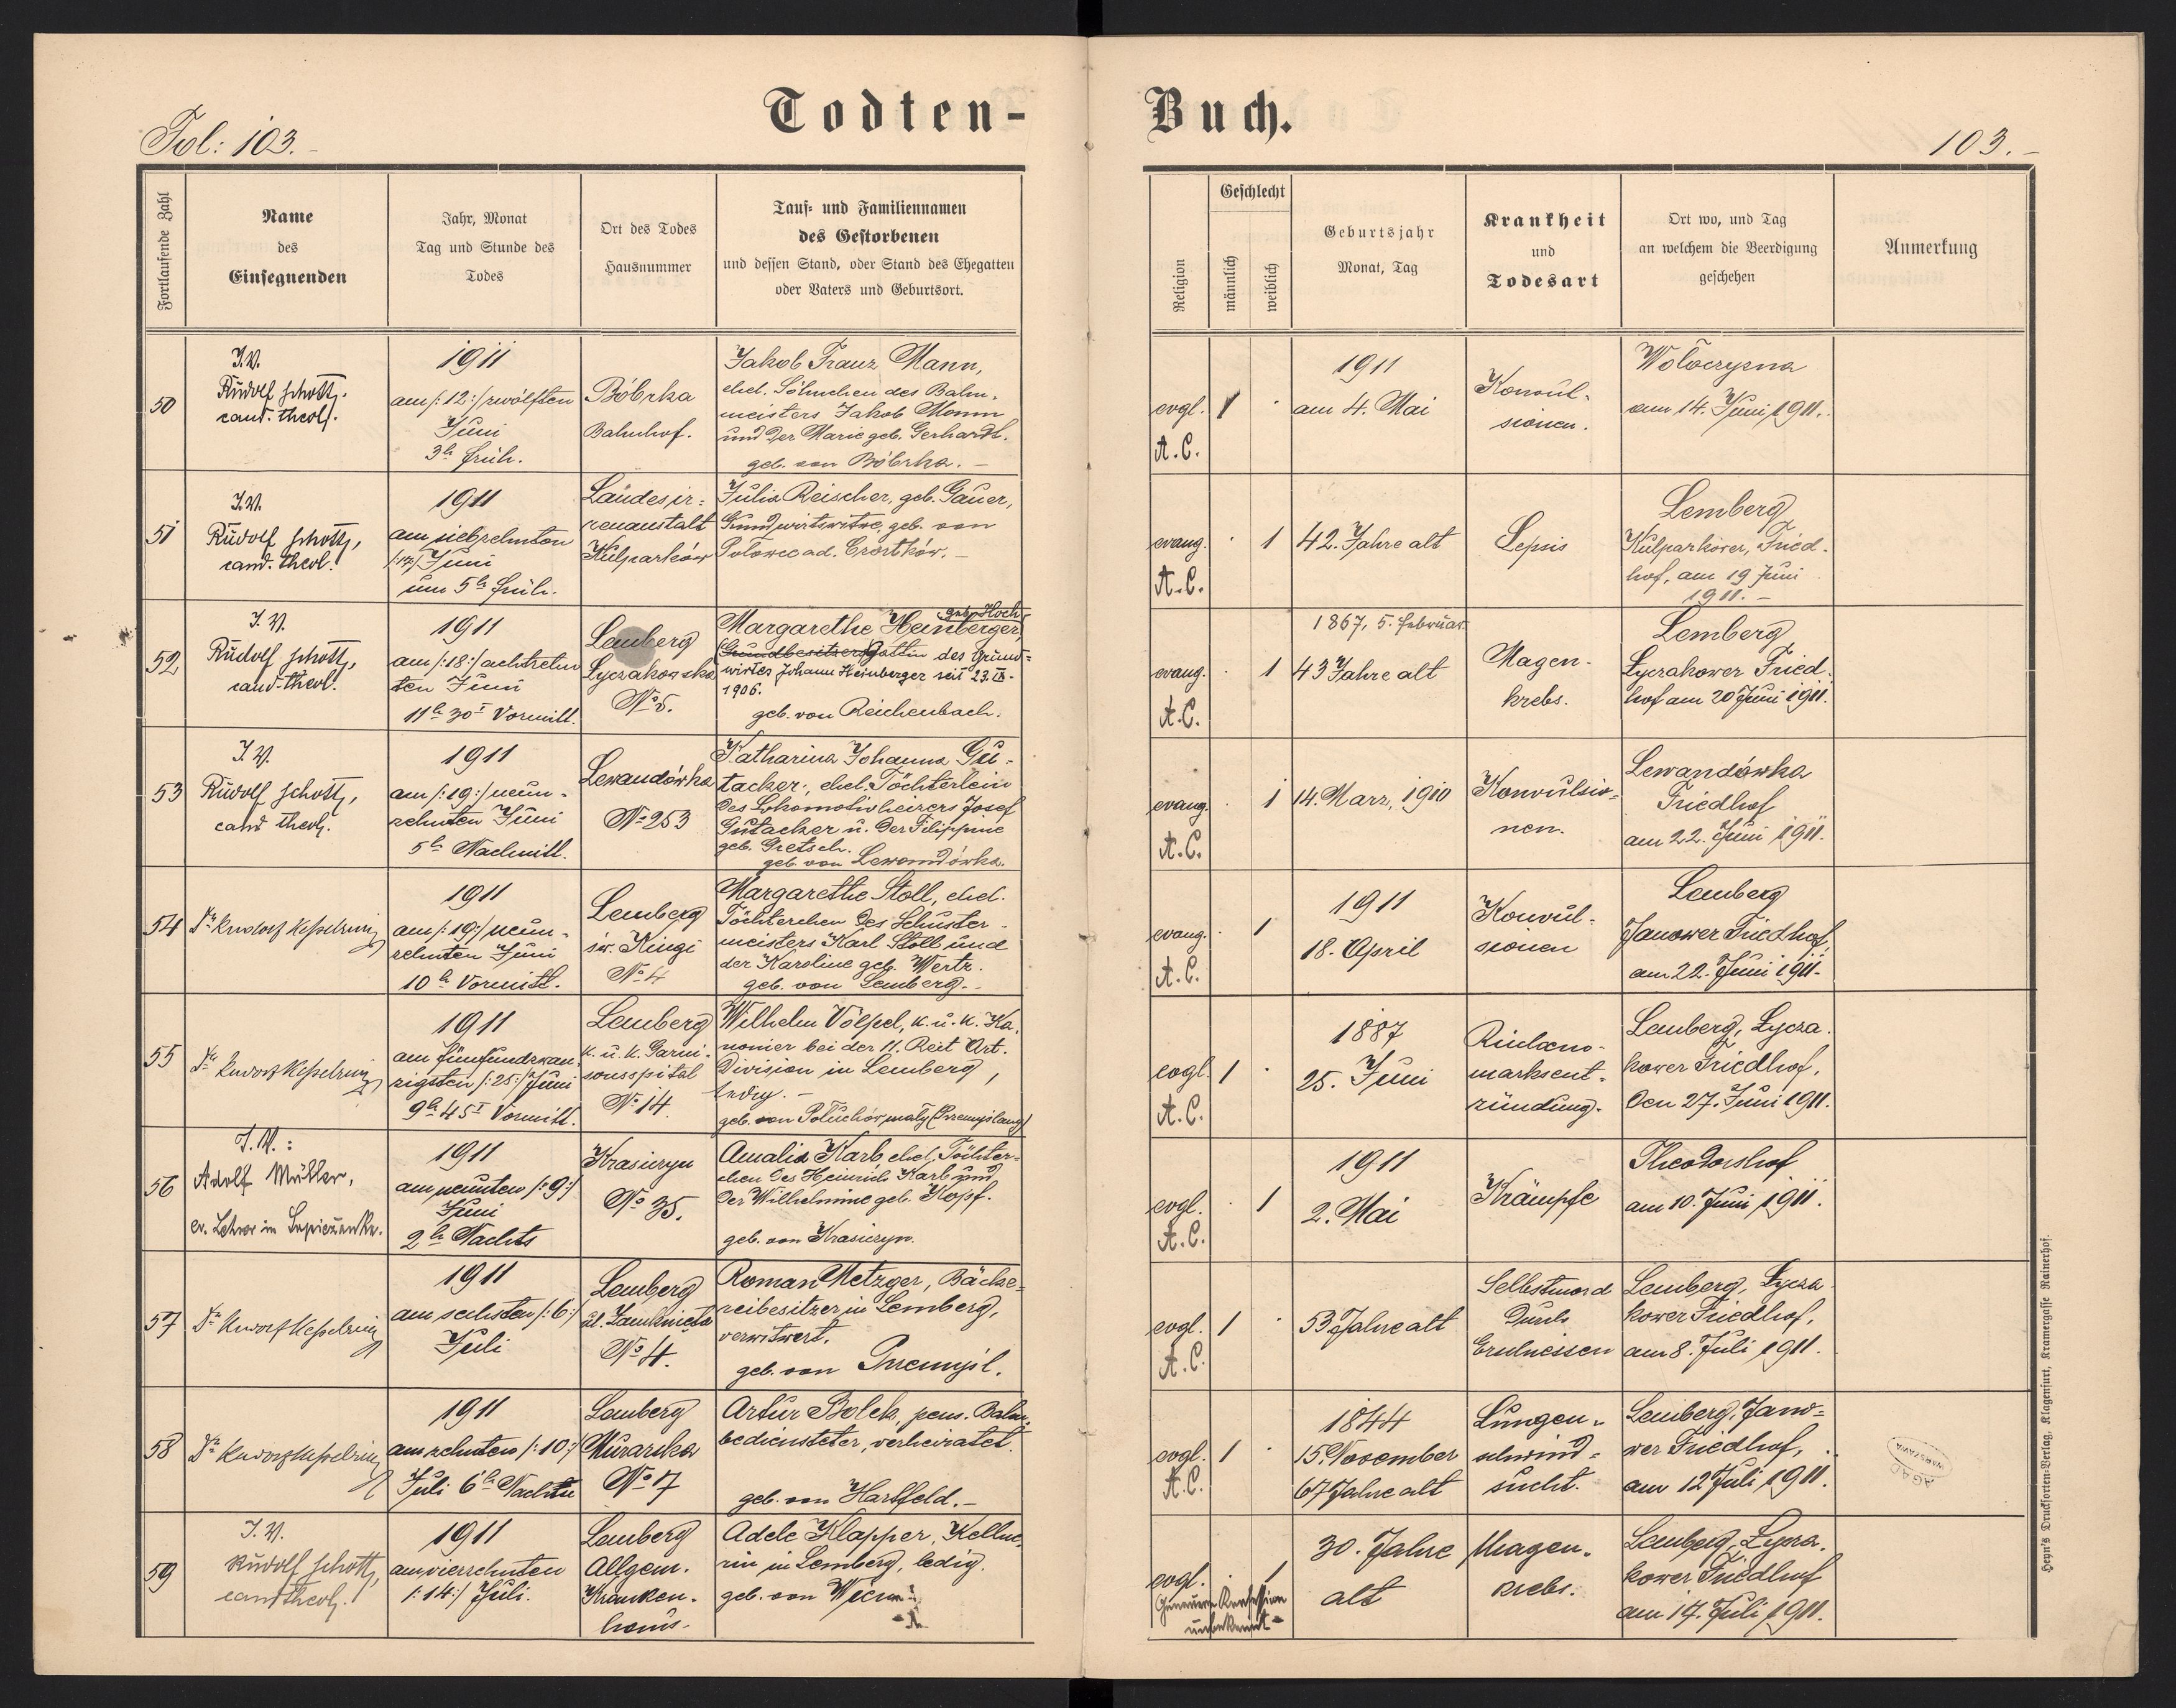 Todten-
Buch.
Fol: 103.
103.
Fortlaufende Zahl
Name
des
Einsegnenden
Jahr, Monat
Tag und Stunde des
Todes
Ort des Todes
Hausnummer
Tauf- und Familiennamen
des Gestorbenen
und dessen Stand, oder Stand des Ehegatten
oder Vaters und Geburtsort.
Religion
Geschlecht
männlich
weiblich
Geburtsjahr
Monat, Tag
Krankheit
und
Todesart
Ort wo, und Tag
an welchem die Beerdigung
geschehen
Anmerkung
50
I.V.
Rudolf Schott,
cand. theol.
1911
am /:12:/ zwölften
Juni
3h früh.
Bóbrka
Bahnhof.
Jakob Franz Mann,
ehel. Söhnchen des Bahn-
meisters Jakob Mann
und der Marie geb. Gerhardt.
geb. von Bóbrka. –
evgl.
A.C.
1
1911
am 4. Mai
Konvul-
sionen.
Woloczyzna
am 14. Juni 1911.
51
I.V.
Rudolf Schott,
cand. theol.
1911
am siebzehnten
/:17:/ Juni
um 5h früh.
Landesir-
renanstalt
Kulparków
Julia Reischer, geb. Gauer,
Grundwirtswitwe, geb. von
Polowce ad. Czortków. –
evang.
A.C.
1
42. Jahre alt
Sepsis
Lemberg
Kulparkower, Fried-
hof, am 19 Juni
1911. –
52
I.V.
Rudolf Schott,
cand. theol.
1911
am /:18:/ achtzehn
ten Juni
11h 30' Vormitt.
Lemberg
Łyczakowska
No 5.
geb. Hoch
Margarethe Heinberger,
Grundbesitzersgattin des Grund-
wirtes Johann Heinberger seit 23. IX.
1906.
geb. von Reichenbach.
evang.
A.C.
1
1867, 5. Februar
43 Jahre alt
Magen-
krebs.
Lemberg
Łyczakower Fried-
hof am 20 Juni 1911.
53
I.V.
Rudolf Schott,
cand theol.
1911
am /:19:/ neun-
zehnten Juni
5h Nachmitt.
Lewandówka
No 253
Katharina Johanna Gu-
tacker, ehel. Töchterlein
des Lokomotivheizers Josef
Gutacker u. der Filippine
geb. Gretsch.
geb. von Lewandówka.
evang.
A.C.
1
14. März, 1910
Konvulsio-
nen.
Lewandówka
Friedhof
am 22. Juni 1911.
54
Dr Rudolf Kesselring
1911
am /:19:/ neun-
zehnten Juni
10h Vormitt.
Lemberg
św. Kingi
No 4
Margarethe Stoll, ehel.
Töchterchen des Schuster-
meisters Karl Stoll und
der Karoline geb. Wertz.
geb. von Lemberg. –
evang.
A.C.
1
1911
18. April
Konvul-
sionen
Lemberg
Janower Friedhof,
am 22. Juni 1911.
55
Dr Rudolf Kesselring
1911
am fünfundzwan-
zigsten /:25:/ Juni
9h 45' Vormitt.
Lemberg
k. u. k. Garni-
sonsspital
No 14.
Wilhelm Völpel, k. u. k. Ka-
nonier bei der 11. Reit Art.
Division in Lemberg,
ledig. –
geb. von Poluchów mały (Przemyślany)
evgl.
A.C.
1
1887
25. Juni
Rücken-
marksent-
zündung.
Lemberg, Łycza-
kower Friedhof,
den 27. Juni 1911.
56
I.V.:
Adolf Müller,
ev. Lehrer in
1911
am neunten /:9:/
Juni
2h Nachts
Krasiczyn
No 35.
Amalia Karb ehel. Töchter-
chen des Heinrich Karb und
der Wilhelmine geb. Kopf.
geb. von Krasiczyn.
evgl.
A.C.
1
1911
2. Mai
Krämpfe
Theodorshof
am 10. Juni 1911.
57
Dr Rudolf Kesselring
1911
am sechsten /:6:/
Juli
Lemberg
ul. Zamknięta
No 4.
Roman Metzger, Bäcke-
reibesitzer in Lemberg,
verwitwert.
geb. von Przemyśl.
evgl.
A.C.
1
53 Jahre alt
Selbstmord
durch
Erschiessen
Lemberg, Łycza-
kower Friedhof,
am 8. Juli 1911.
58
Dr Rudolf Kesselring
1911
am zehnten /:10:/
Juli 6h Nachts
Lemberg
Murarska
No 17
Artur Bolek, pens. Bahn-
bediensteter, verheiratet.
geb. von Hartfeld. –
evgl.
A.C.
1
1844
15. November
67 Jahre alt
Lungen-
schwind-
sucht.
Lemberg, Jano-
wer Friedhof,
am 12 Juli 1911.
AGAD
WARSZAWA
59
I.V.
Rudolf Schott,
cand theol.
1911
am vierzehnten
/:14:/ Juli.
Lemberg
Allgem.
Kranken-
haus.
Adele Klapper, Kellne-
rin in Lemberg, ledig.
geb. von Wien
evgl.
Genauere Konfession
unbekannt –
1
30. Jahre
alt
Magen-
krebs.
Lemberg, Łycza-
kower Friedhof
am 17. Juli 1911.
Heyn's Drucksorten-Verlag, Klagenfurt, Kramergasse Rainerhof.